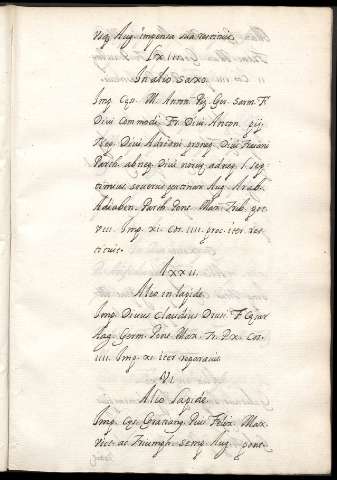 Aug. impensa sua restituit.
LXIIII
In alio saxo.
Imp. Cęs. M. Anton. Pij. Ger. Sarm. F.
Divi Commodi Fr. Divi Anton. pij
Neg. Divi Adriani proneg. Divi Traiani
Parth. abneq. Divi nervę adneq. L. sep-
timius severus pertinax Aug. Arab.
Adiaben. Parth. Pont. Max. Trib. pot.
VIII. Imp. xi. cos. iiii. proc. iter. res
tituit.
LXXII.
Alio in lapide
Imp. Divus Claudius Drusi. F. Cęsar
Aug. Germ. Pont. Max. Tr. P. xi. Cos.
iiii. Imp. xi. iter reparavit
VI
Alio Lapide
Imp. Cęs. Gratian9. Pius Felix. Max.
Vict. ac Triumph. semp. Aug. pont.